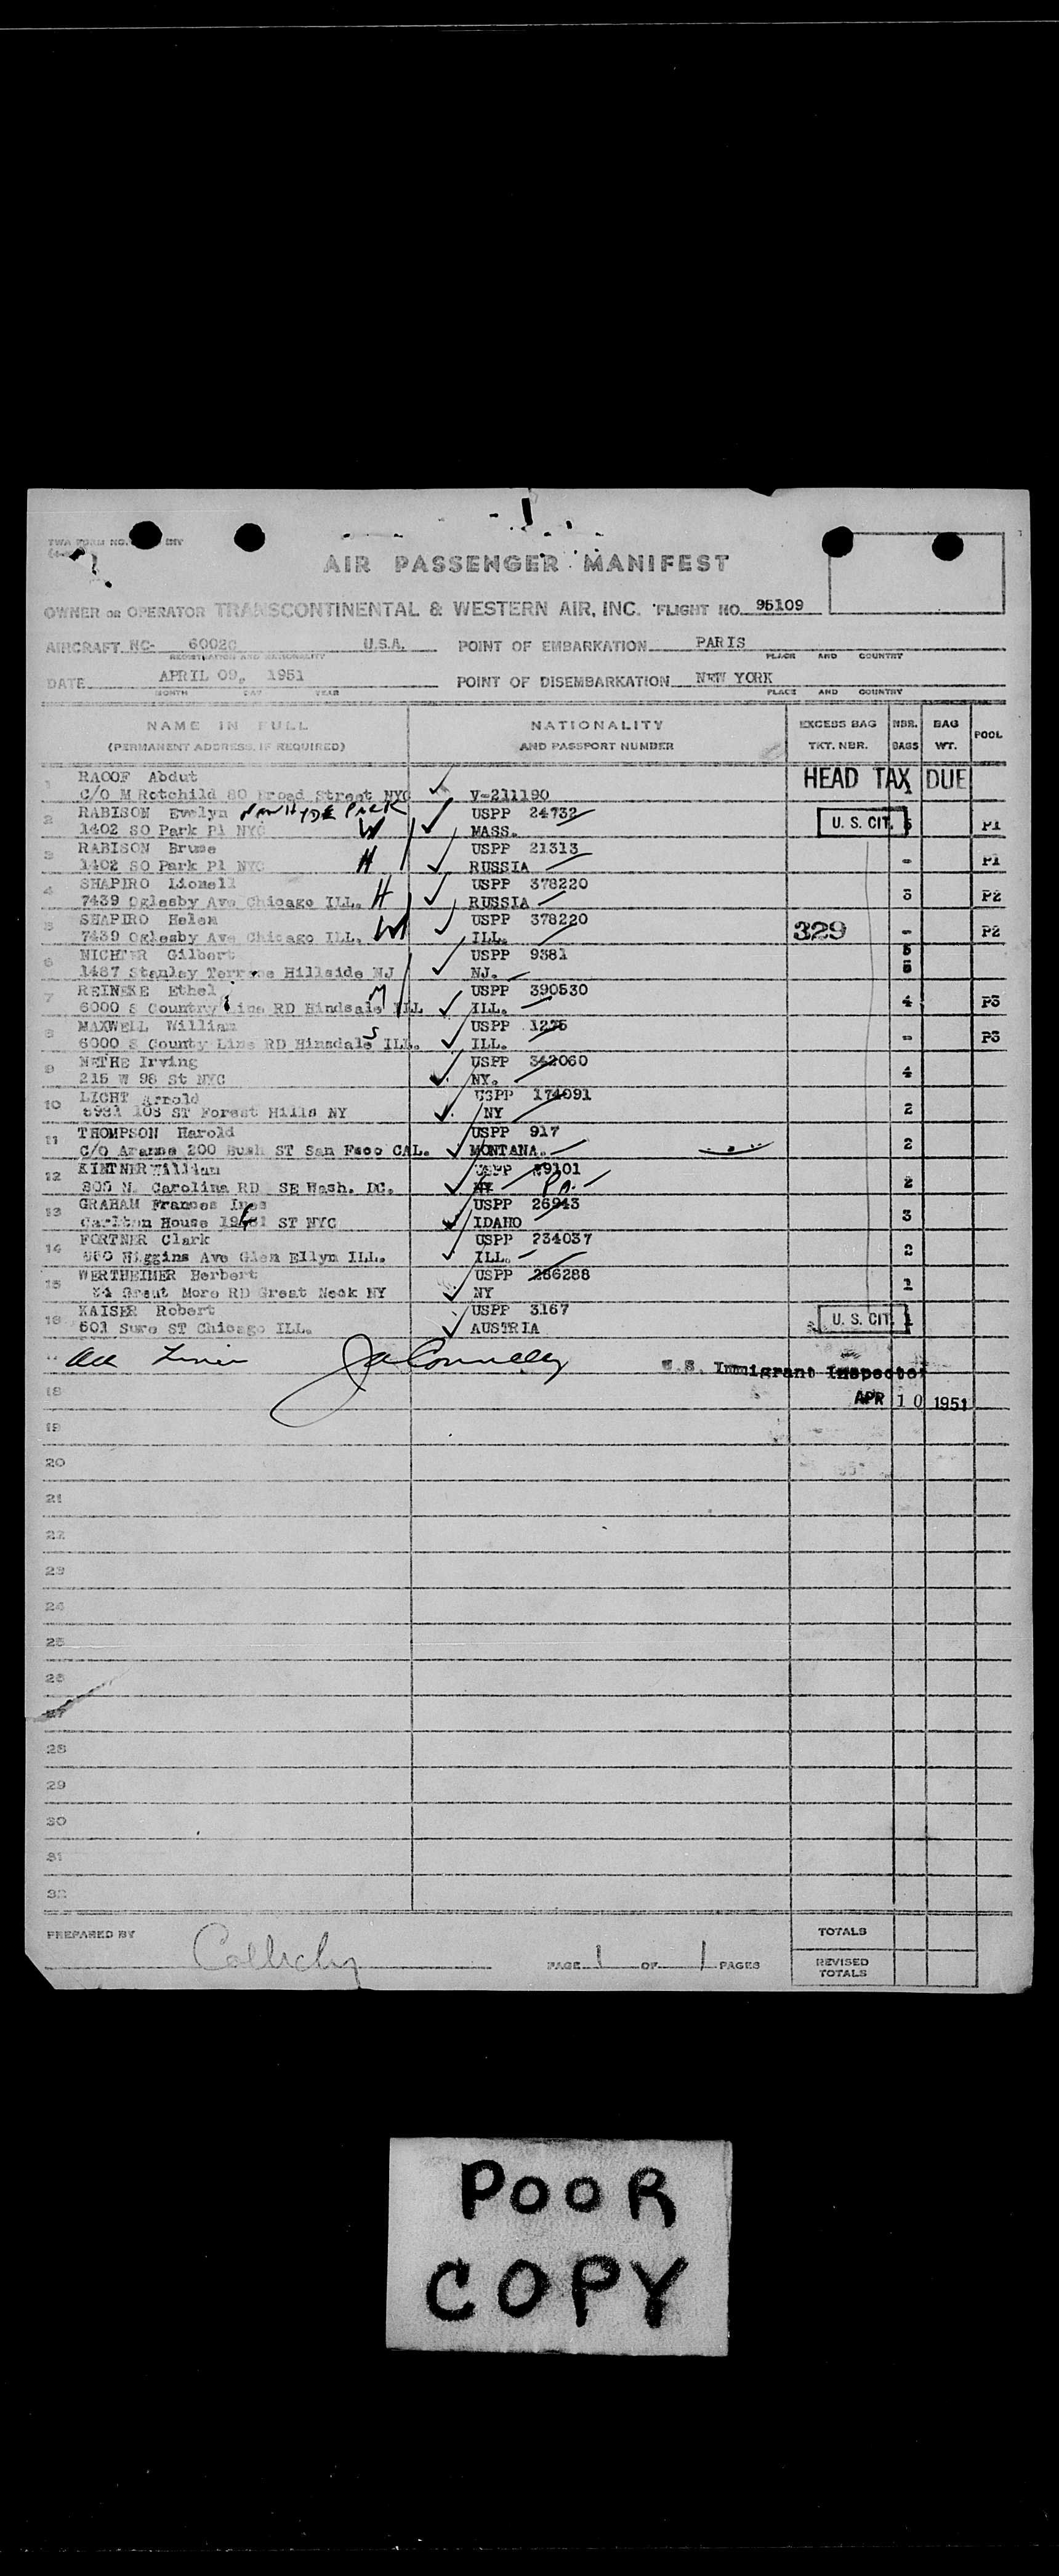 TWA FORM NO.
AIR PASSENGER MANIFEST
OWNER OR OPERATOR TRANSCONTINENTAL & WESTERN AIR, INC. FLIGHT NO. 95109
AIRCRAFT NC- 6002C U.S.A. POINT OF EMBARKATION PARIS
REGISTRATION AND NATIONALITY PLACE AND COUNTRY
DATE APRIL 09, 1951 POINT OF DISEMBARKATION NEW YORK
MONTH DAY YEAR PLACE AND COUNTRY
NAME IN FULL NATIONALITY EXCESS BAG NBR. BAG POOL
(PERMANENT ADDRESS, IF REQUIRED) AND PASSPORT NUMBER TKT. NBR. BAGS WT.
1 RAOOF Abdut HEAD TAX DUE
C/O M Rotchild 80 Broad Street NYC V-211190
2 RABISON Evelyn NEW HYDE PARK USPP 24732 U. S. CIT. 5
1402 SO Park Pl NYC W MASS. P1
3 RABISON Bruse USPP 21313
1402 SO Park Pl NYC H RUSSIA - P1
4 SHAPIRO Lionell USPP 378220
7439 Oglesby Ave Chicago ILL. H RUSSIA 3 P2
5 SHAPIRO Helen USPP 378220
7439 Oglesby Ave Chicago ILL. W ILL. 329 - P2
6 NICHTER Gilbert USPP 9381 5
1487 Stanley Terrace Hillside NJ NJ. 5
7 REINEKE Ethel M USPP 390530
6000 S Country Line RD Hindsale ILL ILL. 4 P3
8 MAXWELL William S USPP 1225
6000 S County Line RD Hinsdale ILL. ILL. - P3
9 NETHE Irving USPP 342060
215 W 98 St NYC NY. 4
10 LIGHT Arnold USPP 174091
6931 108 ST Forest Hills NY NY 2
11 THOMPSON Harold USPP 917
C/O Aramme 200 Bush ST San Fsco CAL. MONTANA. 2
12 KINTNER William USPP 29101
305 N. Carolina RD SE Wash. DC. NY PA. 2
13 GRAHAM Frances Ines USPP 26943
Carlton House ST NYC IDAHO 3
14 FORTNER Clark USPP 234037
Higgins Ave Glen Ellym ILL. ILL. 2
15 WERTHEIMER Herbert USPP 286288
Great More RD Great Neck NY NY 1
16 KAISER Robert USPP 3167
501 Sure ST Chicago ILL. AUSTRIA U. S. CIT. 1
J A Connelly U.S. Immigrant Inspector
18 APR 10 1951
19
20
21
22
23
24
25
26
27
28
29
30
31
32
PREPARED BY TOTALS
PAGE 1 OF 1 PAGES REVISED
TOTALS
POOR
COPY